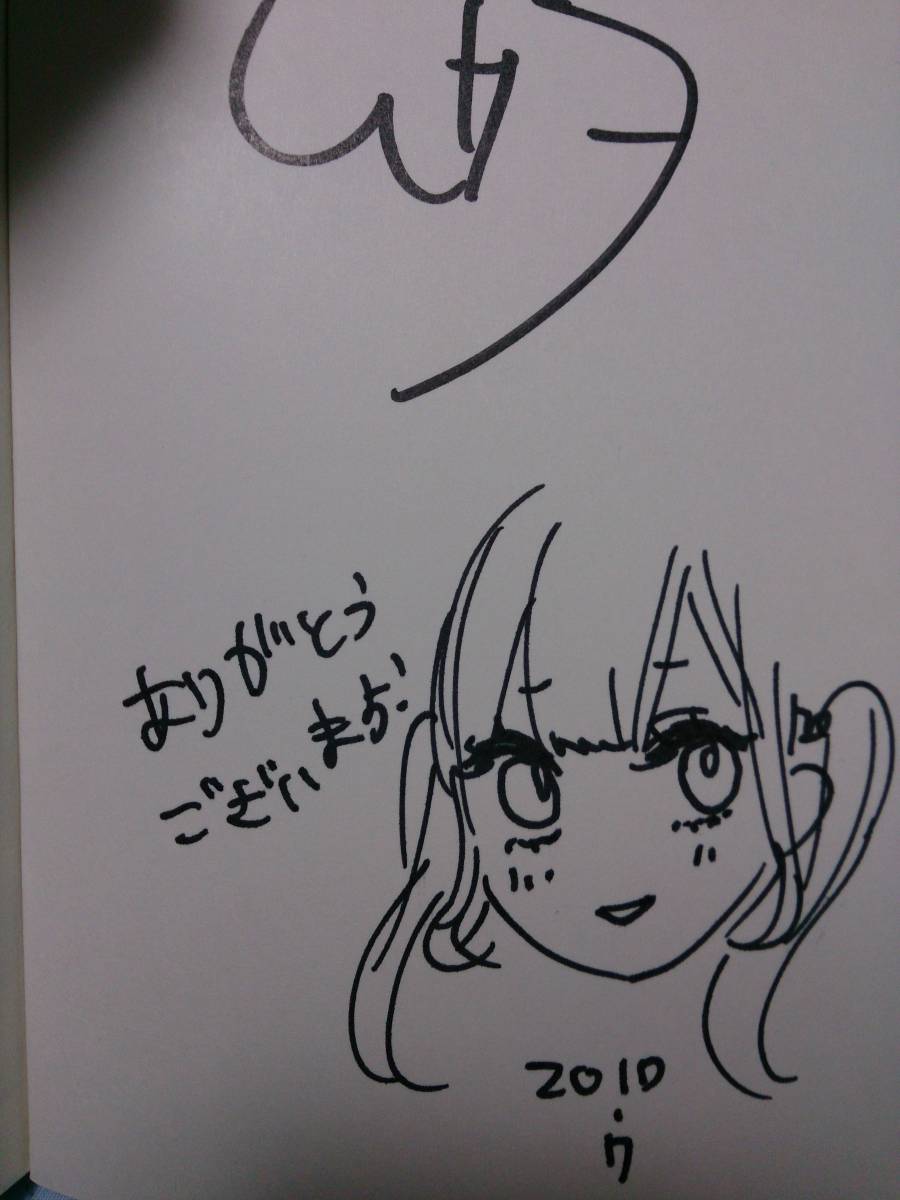 ありがとう
ございます。
2010
.7